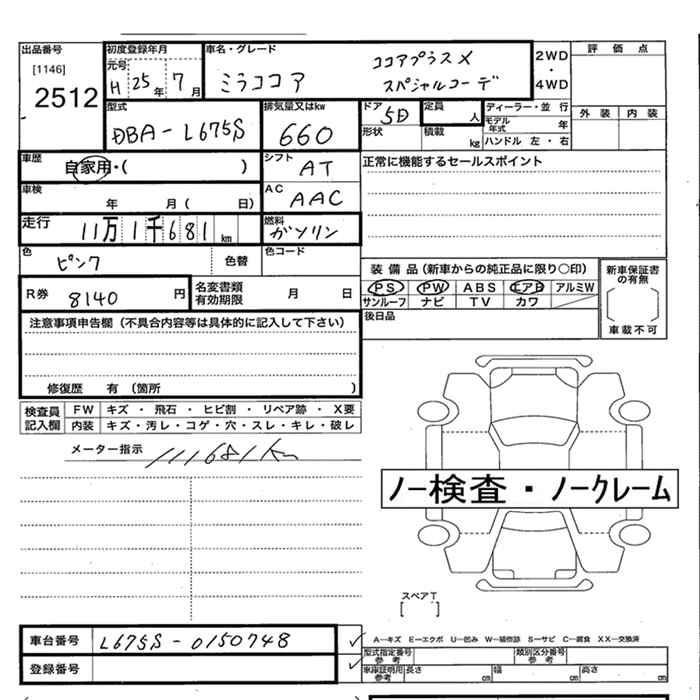 出品番号
[1146]
2512
初度登録年月
元号
H 25年 7月
車名・グレード
ミラココア
ココアプラスX
スペシャルコーデ
2WD
・
4WD
評価点
外装 内装
型式
DBA-L675S
排気量又はkw
660
ドア 5D
形状
定員 人
積載 kg
ディーラー・並行
モデル年式 年
ハンドル 左・右
車歴
自家用・( )
シフト
AT
正常に機能するセールスポイント
車検
年 月( 日)
AC
AAC
走行
11万1千681km
燃料
ガソリン
色
ピンク
色替
色コード
装備品(新車からの純正品に限り○印)
PS PW ABS エアB アルミW
サンルーフ ナビ TV カワ
新車保証書
の有無
車載不可
R券 8140円
名変書類
有効期限 月 日
後日品
注意事項申告欄(不具合内容等は具体的に記入して下さい)
修復歴 有(箇所 )
検査員
記入欄
FW キズ・飛石・ヒビ割・リペア跡・X要
内装 キズ・汚レ・コゲ・穴・スレ・キレ・破レ
メーター指示 111681km
ノー検査・ノークレーム
スペアT
[ ]
車台番号 L675S-0150748
登録番号
A―キズ E―エクボ U―凹み W―補修跡 S―サビ C―腐食 XX―交換済
型式指定番号
参考
類別区分番号
参考
車庫証明用
参考
長さ cm 幅 cm 高さ cm